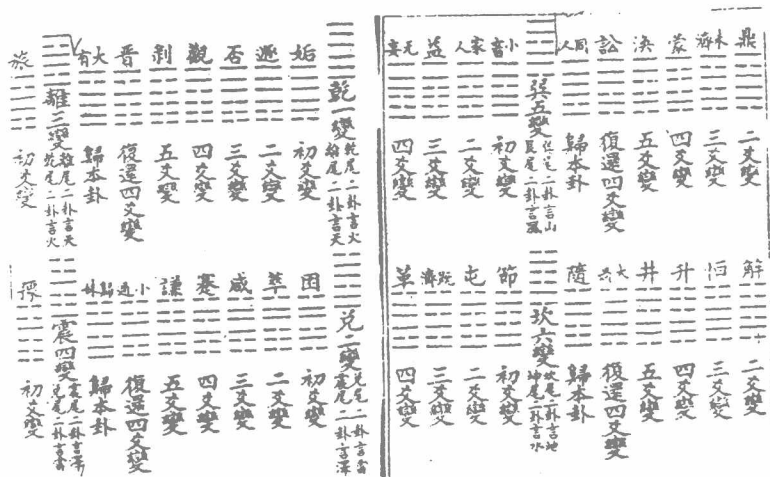 鼎 二爻變
未濟 三爻變
蒙 四爻變
渙 五爻變
訟 復還四爻變
同人 歸本卦
巽五變
二卦言山
艮尾二卦言風
小畜 初爻變
家人 二爻變
益 三爻變
无妄 四爻變
解 二爻變
恒 三爻變
升 四爻變
井 五爻變
大過 復還四爻變
隨 歸本卦
坎六變
坎尾二卦言地
坤尾二卦言水
節 初爻變
屯 二爻變
既濟 三爻變
革 四爻變
乾一變
乾尾二卦言火
離尾二卦言天
姤 初爻變
遯 二爻變
否 三爻變
觀 四爻變
剝 五爻變
晉 復還四爻變
大有 歸本卦
離三變
離尾二卦言天
乾尾二卦言火
旅 初爻變
兌二變
兌尾二卦言雷
震尾二卦言澤
困 初爻變
萃 二爻變
咸 三爻變
蹇 四爻變
謙 五爻變
小過 復還四爻變
歸妹 歸本卦
震四變
震尾二卦言澤
兌尾二卦言雷
豫 初爻變